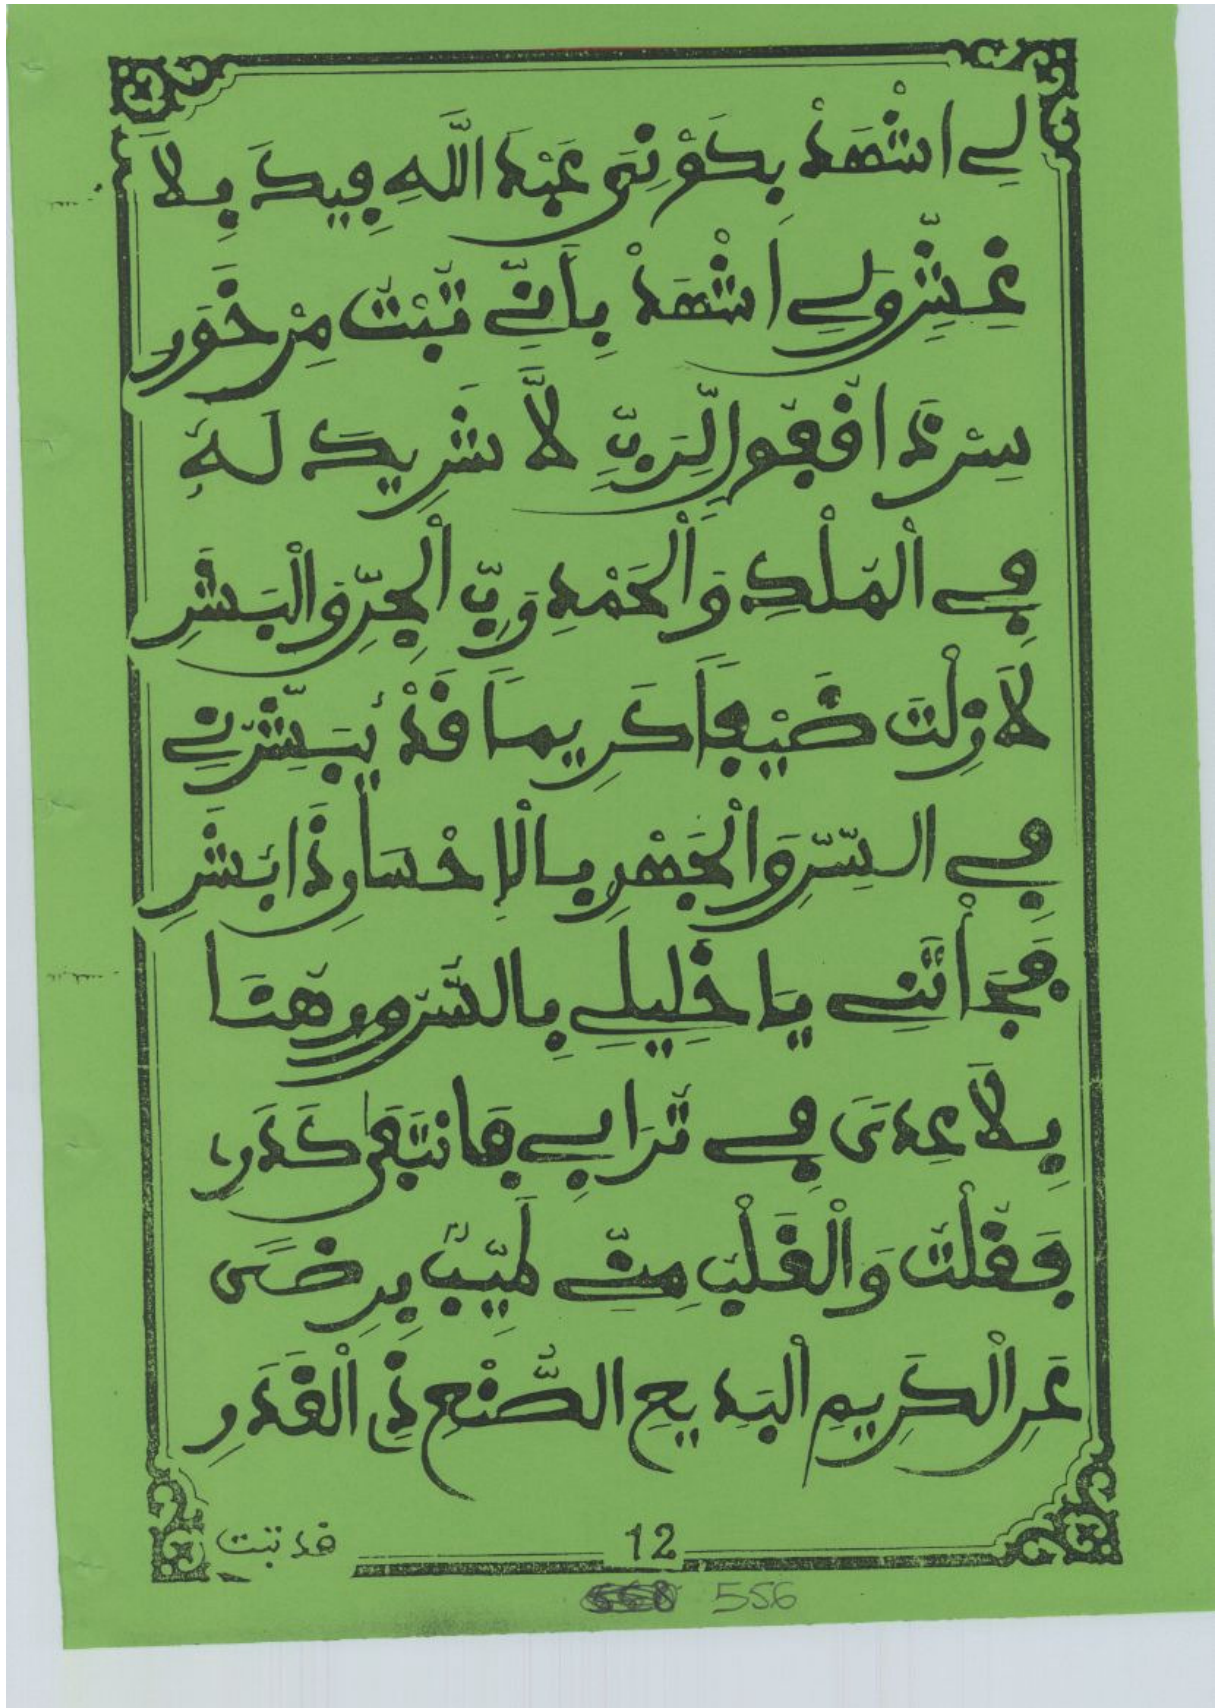 لِے اشْهَدْ بِكَوْنِي عَبْدَ اللَّهِ فِيكَ بِلاَ
غِشٍّ وَلِے اشْهَدْ بِأَنِّے تُبْتُ مِنْ خَوَرِ
سِرْ نَحْوَ أَفْقَرِ لِرَبٍّ لاَّ شَرِيكَ لَهُ
فِے الْمُلْكِ وَالْحَمْدِ رَبِّ الْجِنِّ وَالْبَشَرِ
لاَ زِلْتُ ضَيْفاً كَرِيماً قَدْ يُبَشِّرُنِے
فِے السِّرِّ وَالْجَهْرِ بِالْإِحْسَانِ ذَا بُشَرِ
فَجَأْتَنِے يَا خَلِيلِے بِالسُّرُورِ هُنَا
بِلاَ عِدًى فِے تُرَابِے فَانْتَفَى كَدَرِ
فَقُلْتُ وَالْقَلْبُ مِنِّے طَيِّبٌ بِرِضًى
عَنِ الْكَرِيمِ الْبَدِيعِ الصُّنْعِ ذِي الْقَدَرِ
قد تبت
12
556